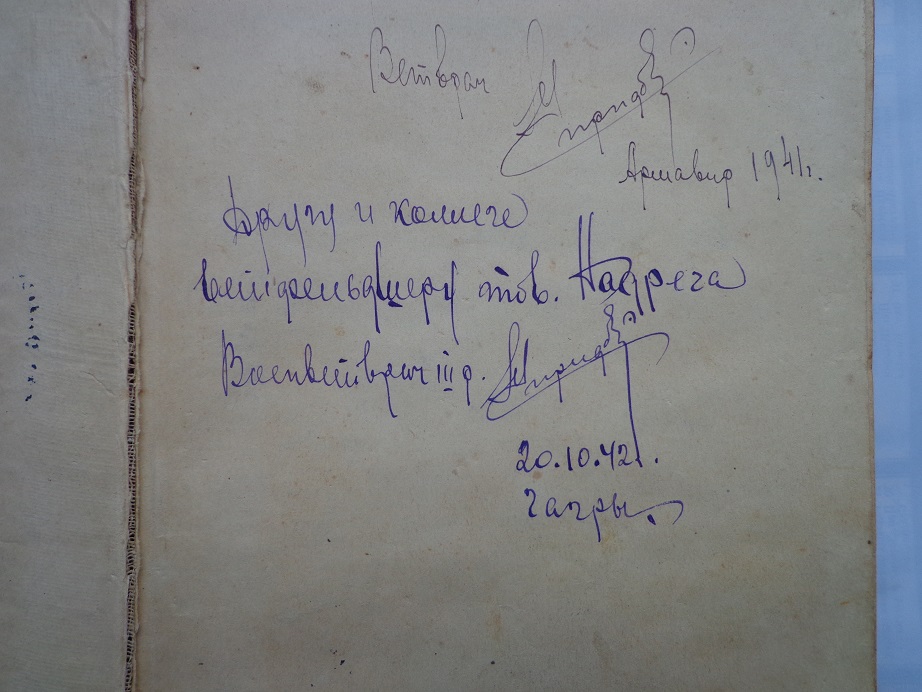 Ветврач
Армавир 1941г.
Другу и коллеге
ветфельдшеру тов. Надрега
Военветврач III р.
20.10.42г.
Гагры.